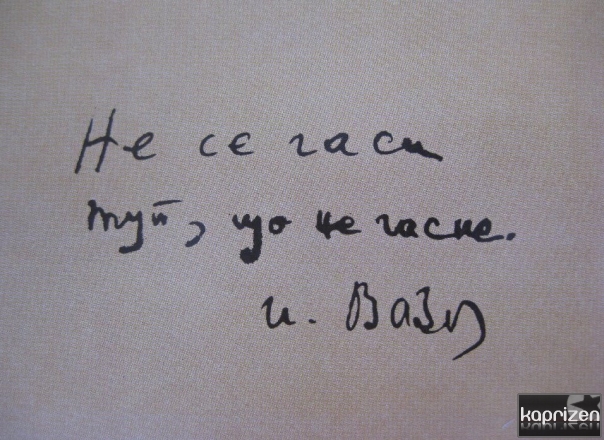 Не се гаси
туй, що не гасне.
и. Вазов
kaprizen